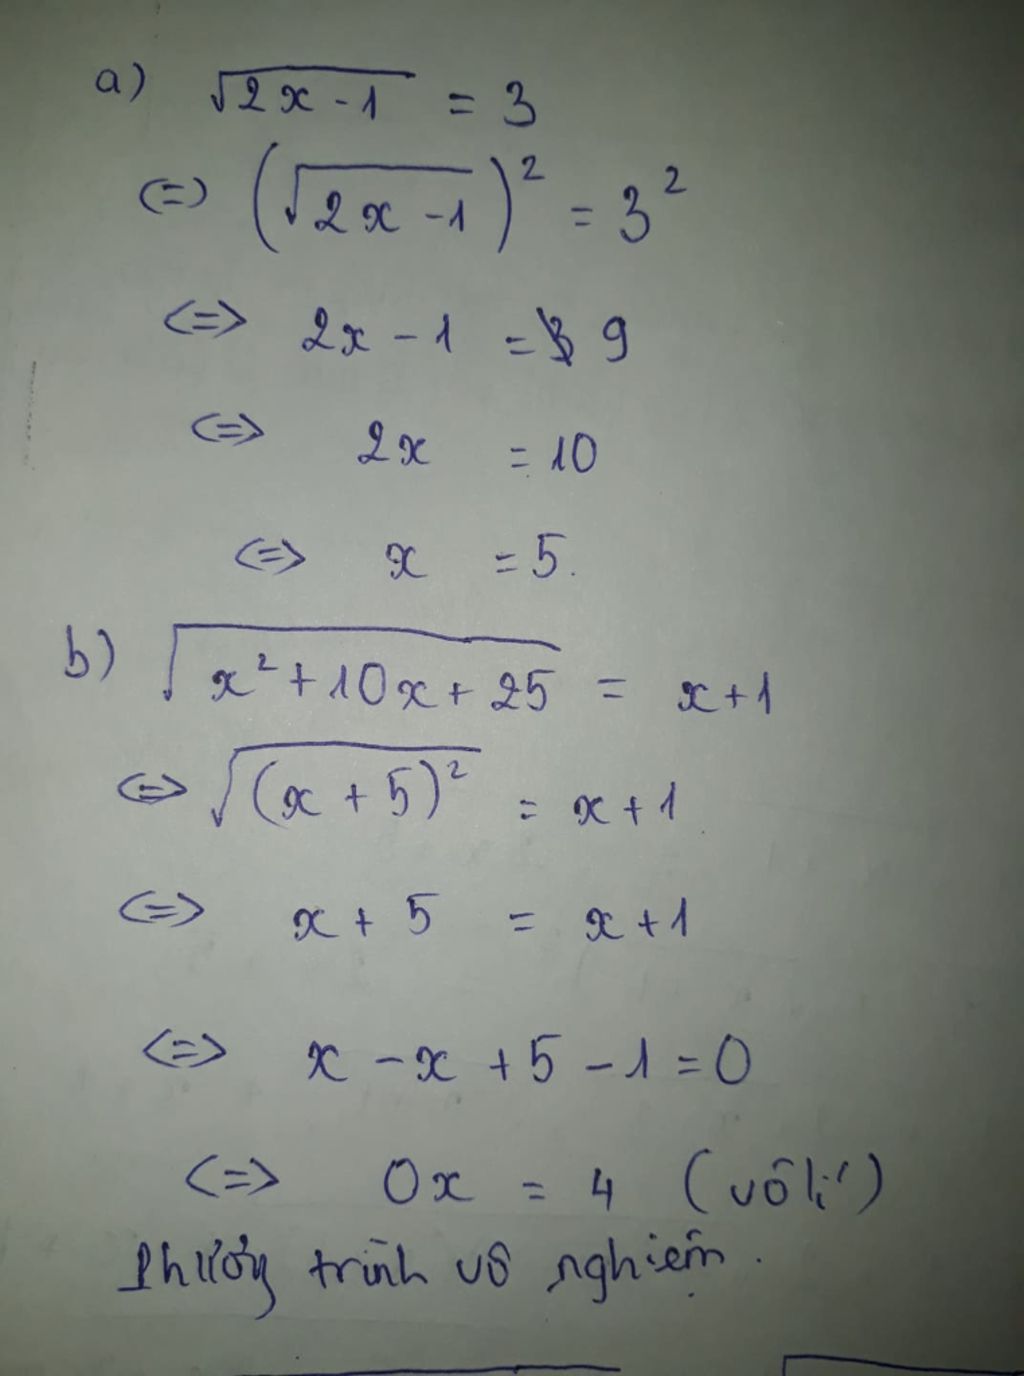 a) √(2x - 1) = 3
(=) (√(2x - 1))² = 3²
<=> 2x - 1 = 9
<=> 2x = 10
<=> x = 5.
b) √(x² + 10x + 25) = x + 1
<=> √((x + 5)²) = x + 1
<=> x + 5 = x + 1
<=> x - x + 5 - 1 = 0
<=> 0x = 4 (vô lí)
Phương trình vô nghiệm.